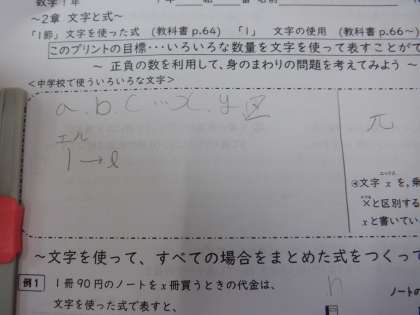 数学1年
～2章 文字と式～
「1節」文字を使った式 (教科書p.64) 「1」 文字の使用 (教科書p.66～)
このプリントの目標・・・いろいろな数量を文字を使って表すことがで
～ 正負の数を利用して、身のまわりの問題を考えてみよう ～
<中学校で使ういろいろな文字>
a.b.c…x.y
エル
l→ℓ
π
④文字 x を、乗
×と区別する
xと書いてい
～文字を使って、すべての場合をまとめた式をつくって
例1 1冊90円のノートをx冊買うときの代金は、
文字を使った式で表すと、
ノートの